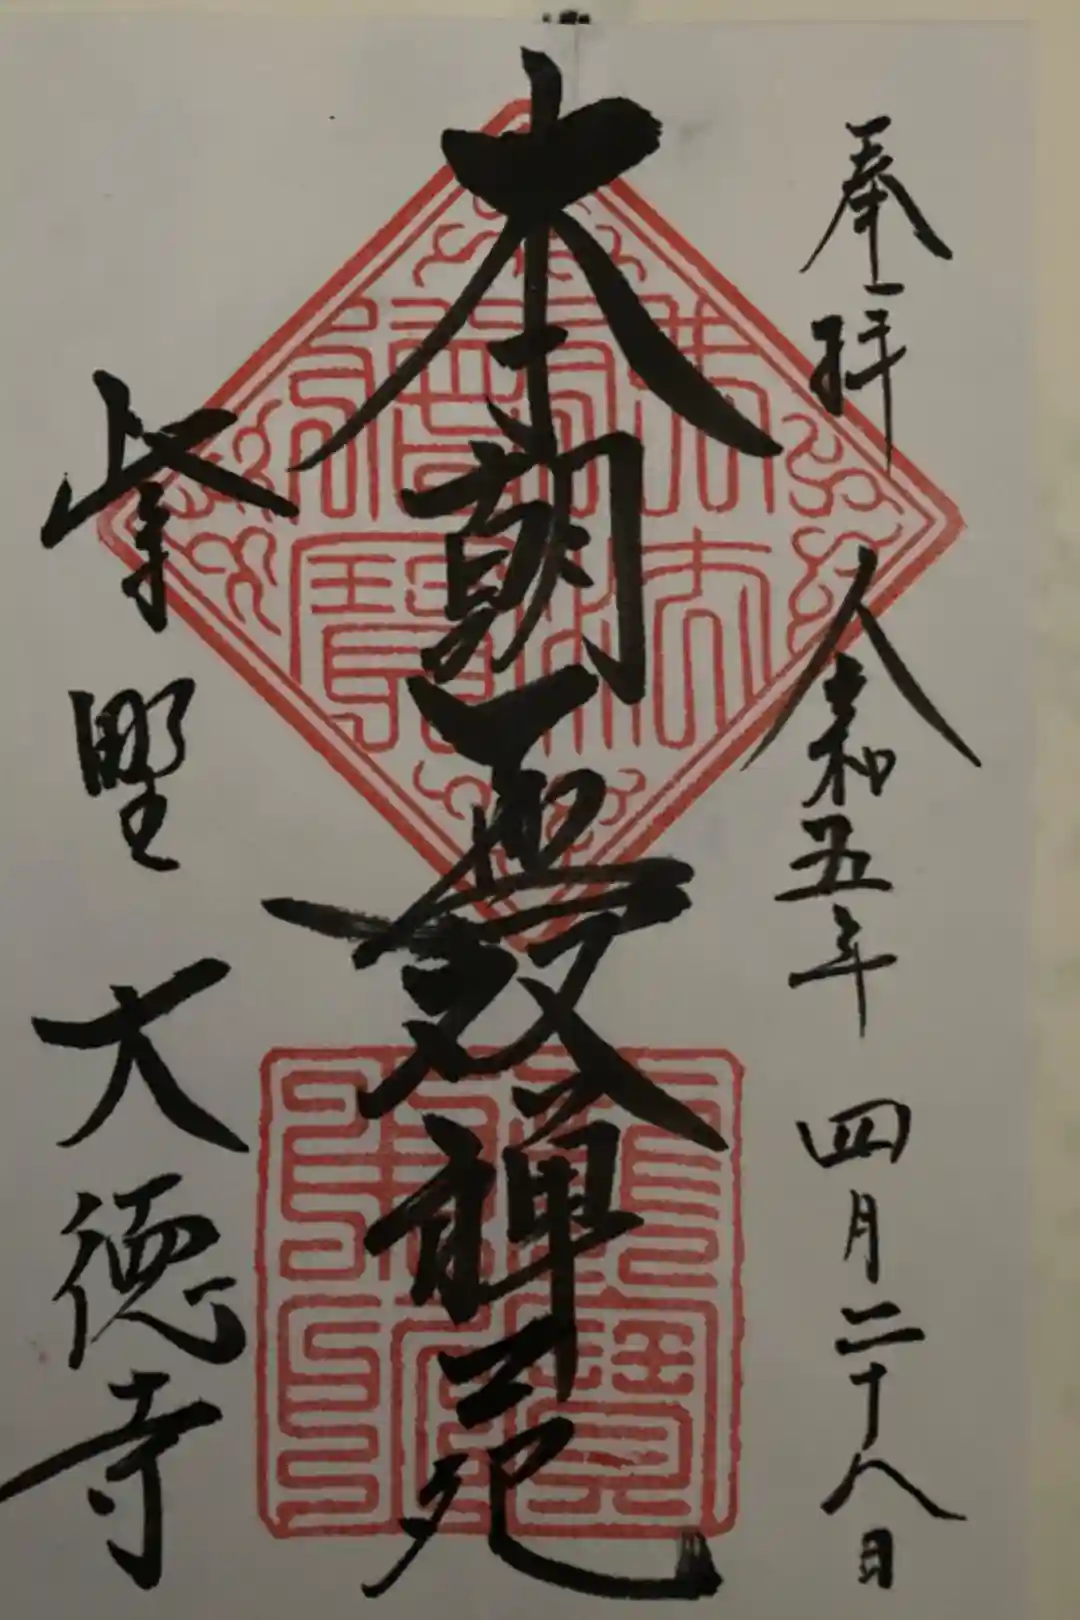 奉拝
令和五年 四月二十八日
本朝無双禅苑
紫野 大徳寺